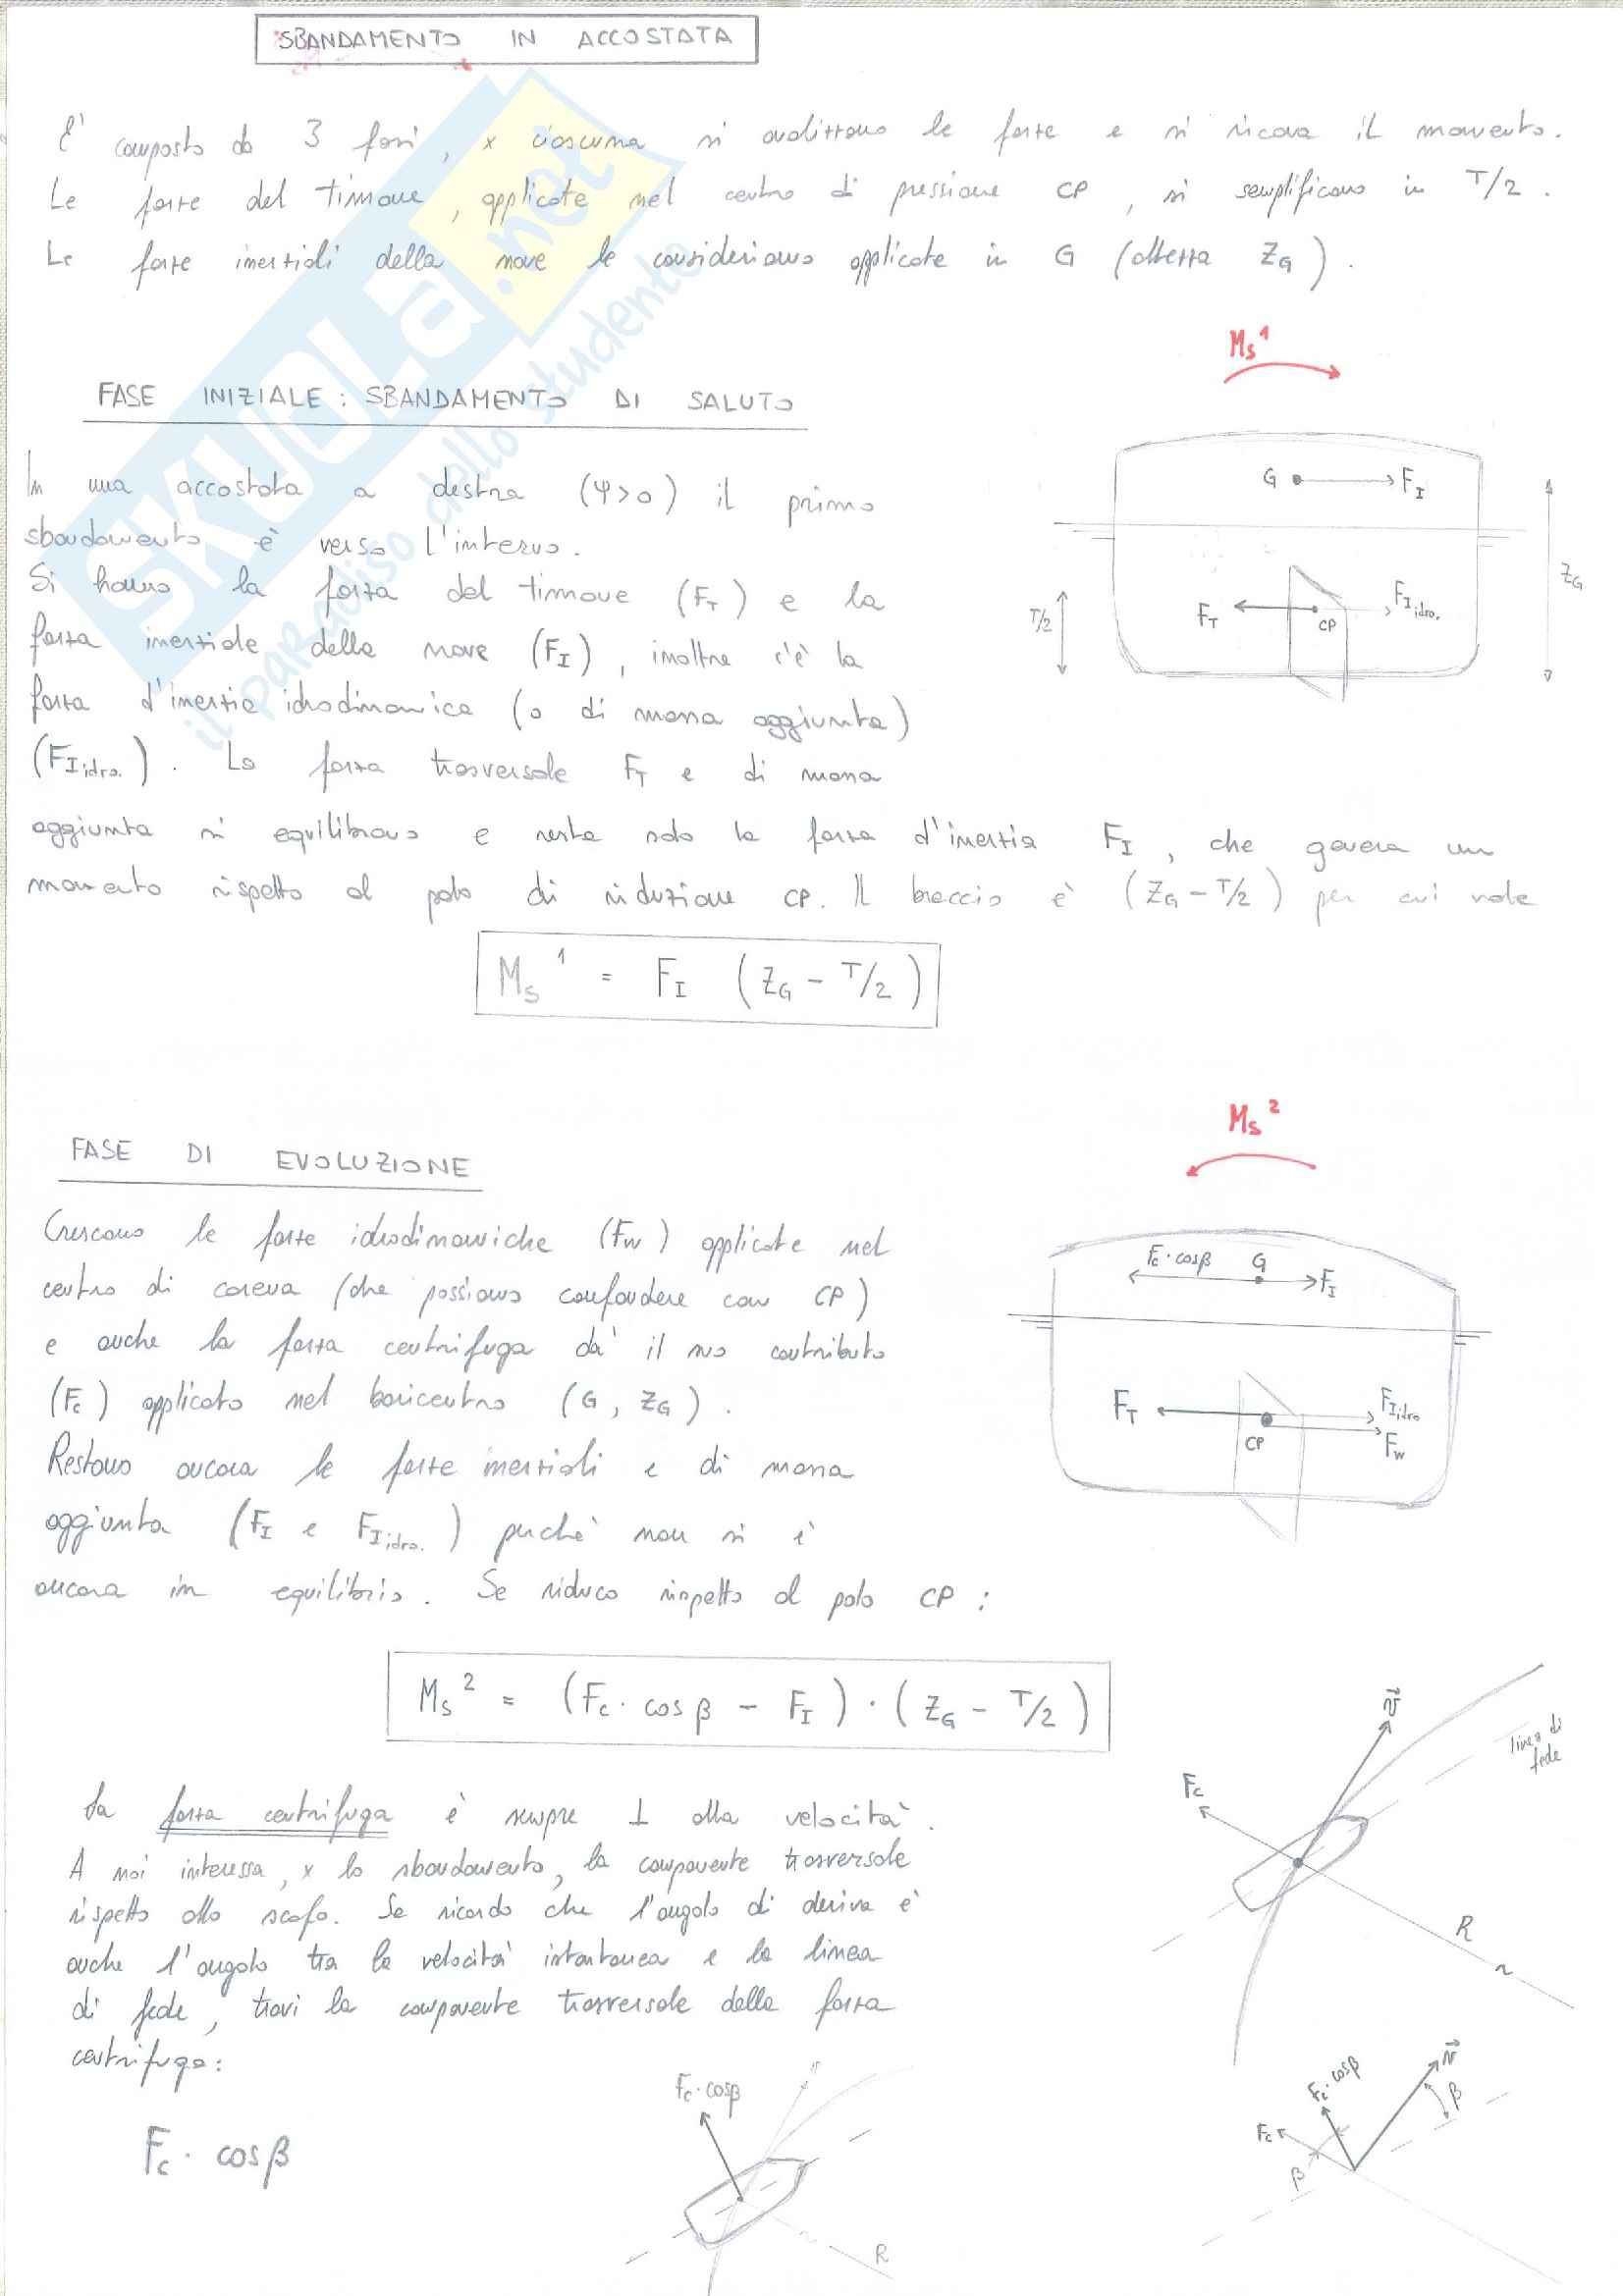 SBANDAMENTO IN ACCOSTATA
E' composto da 3 fasi, x ciascuna si analizzano le forze e si ricava il momento.
Le forze del timone, applicate nel centro di pressione CP, si semplificano in T/2.
Le forze inerziali della nave le consideriamo applicate in G (altezza ZG).
Ms¹
FASE INIZIALE: SBANDAMENTO DI SALUTO
In una accostata a destra (Ψ>0) il primo
sbandamento è verso l'interno.
Si hanno la forza del timone (FT) e la
forza inerziale della nave (FI), inoltre c'è la
forza d'inerzia idrodinamica (o di massa aggiunta)
(FI idro.). La forza trasversale FT e di massa
aggiunta si equilibrano e resta solo la forza d'inerzia FI, che genera un
momento rispetto al polo di riduzione CP. Il braccio è (ZG - T/2) per cui vale
G FI
ZG
T/2
FT CP FI idro.
Ms¹ = FI (ZG - T/2)
Ms²
FASE DI EVOLUZIONE
Crescono le forze idrodinamiche (Fw) applicate nel
centro di carena (che possiamo confondere con CP)
e anche la forza centrifuga dà il suo contributo
(Fc) applicato nel baricentro (G, ZG).
Restano ancora le forze inerziali e di massa
aggiunta (FI e FI idro.) perchè non si è
ancora in equilibrio. Se riduco rispetto al polo CP:
Fc·cosβ G FI
FT CP FI idro
Fw
Ms² = (Fc·cosβ - FI)·(ZG - T/2)
La forza centrifuga è sempre ⊥ alla velocità.
A noi interessa, x lo sbandamento, la componente trasversale
rispetto allo scafo. Se ricordo che l'angolo di deriva è
anche l'angolo tra la velocità istantanea e la linea
di fede, trovi la componente trasversale della forza
centrifuga:
Fc·cosβ
v
linea di
fede
Fc
R
Fc·cosβ
R
Fc·cosβ
v
β
Fc
β
SKUOLA.net
il paradiso dello studente